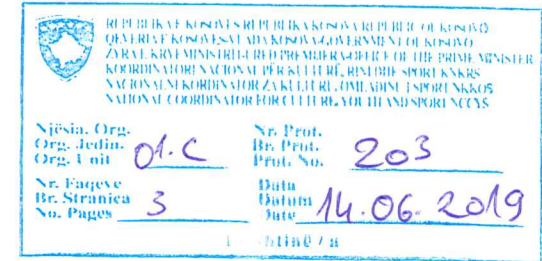 REPUBLIKA E KOSOVËS REPUBLIKA KOSOVA REPUBLIC OF KOSOVO
QEVERIA E KOSOVËS VLADA KOSOVA GOVERNMENT OF KOSOVO
ZYRA E KRYEMINISTRIT URED PREMIJERA OFFICE OF THE PRIME MINISTER
KOORDINATORI NACIONAL PËR KULTURË, RINI DHE SPORT KNKRS
NACIONALNI KORDINATOR ZA KULTURU, OMLADINU I SPORT NKKOS
NATIONAL COORDINATOR FOR CULTURE, YOUTH AND SPORT NCCYS
Njësia. Org.
Org. Jedin.
Org. Unit 01.C
Nr. Prot.
Br. Prot.
Prot. No. 203
Nr. Faqeve
Br. Stranica
No. Pages 3
Data
Datum
Date 14.06.2019